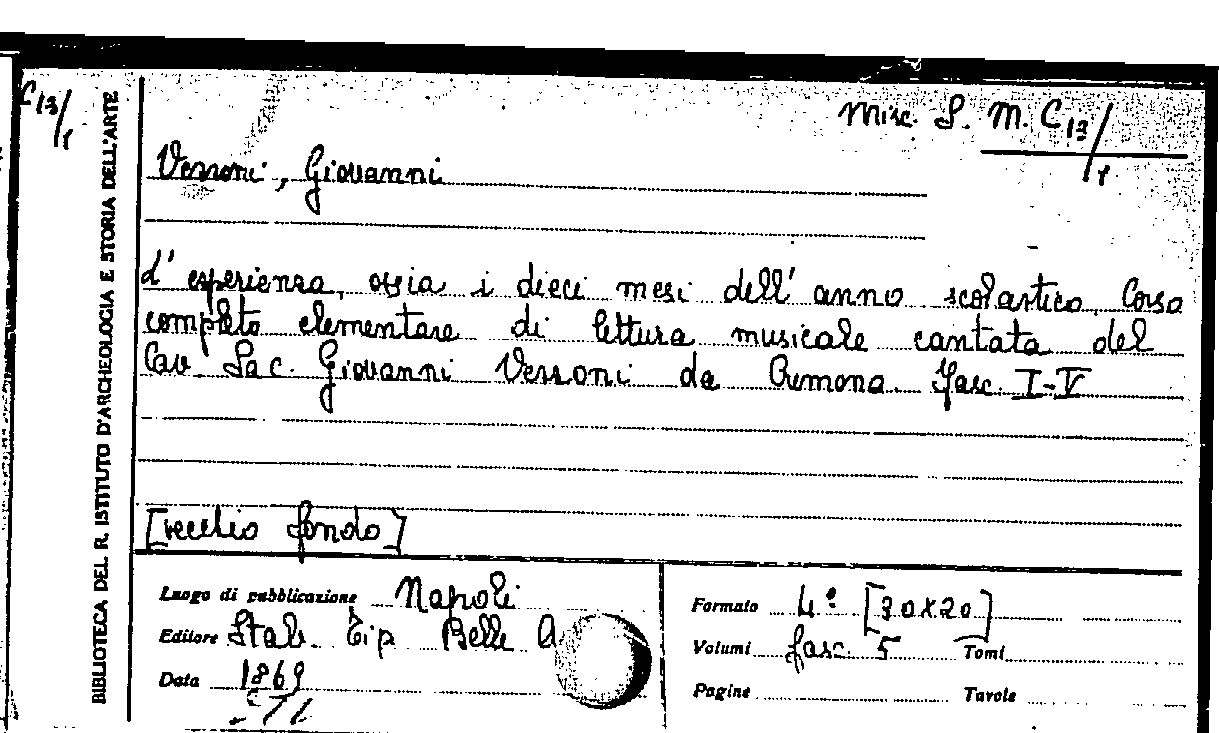 C 13/1
BIBLIOTECA DEL R. ISTITUTO D'ARCHEOLOGIA E STORIA DELL'ARTE
Misc. S. M. C 13/1
Vessoni, Giovanni
L' esperienza, ossia i dieci mesi dell' anno scolastico. Corso
completo elementare di lettura musicale cantata del
Cav. Sac. Giovanni Vessoni da Cremona. Fasc. I-V
[vecchio fondo]
Luogo di pubblicazione Napoli
Editore Stab. Tip. Belle A
Data 1869
Formato 4º [30x20]
Volumi fasc. 5 Tomi
Pagine Tavole